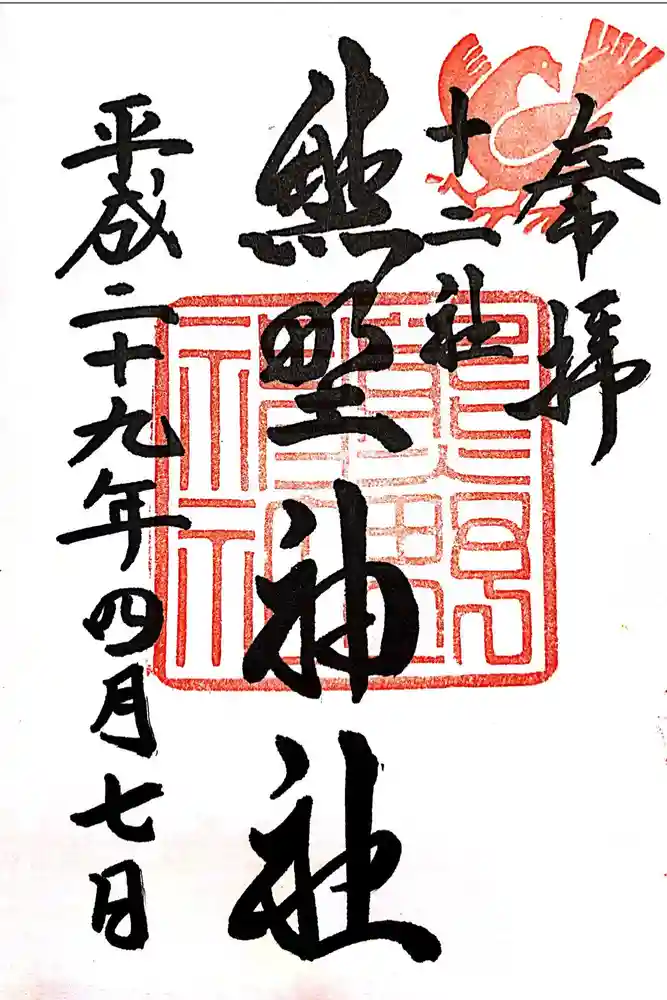 奉拝
十二社
熊野神社
平成二十九年四月七日
熊野神社